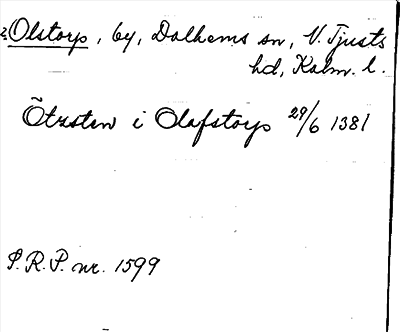 Olstorp, by, Dalhems sn, N. Tjusts
hd, Kalm. l.
Ötzsten i Olafstorp 29/6 1381
S.R.P. nr. 1599